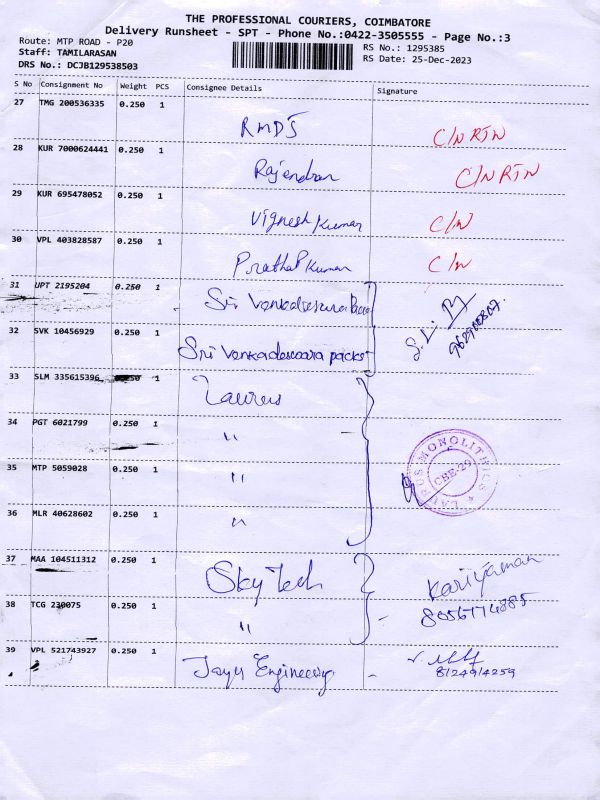 THE PROFESSIONAL COURIERS, COIMBATORE
Delivery Runsheet - SPT - Phone No.:0422-3505555 - Page No.:3
Route: MTP ROAD - P20
Staff: TAMILARASAN
DRS No.: DCJB129538503
RS No.: 1295385
RS Date: 25-Dec-2023
S No Consignment No Weight PCS Consignee Details Signature
27 TMG 200536335 0.250 1 RMDS C/N RTN
28 KUR 7000624441 0.250 1 Rajendran C/N RTN
29 KUR 695478052 0.250 1 Vignesh Kumar C/N
30 VPL 403828587 0.250 1 Prathap Kumar C/N
31 UPT 2195204 0.250 1 Sri
32 SVK 10456929 0.250 1 Sri packs
33 SLM 335615396 0.250 1 Laurus
34 PGT 6021799 0.250 1 "
35 MTP 5059028 0.250 1 "
36 MLR 40628602 0.250 1 "
LAURUS MONOLITHICS
CBE-29
37 MAA 104511312 0.250 1 Sky Tech Kariyaman
38 TCG 230075 0.250 1 "
39 VPL 521743927 0.250 1 Engineering
8124914259